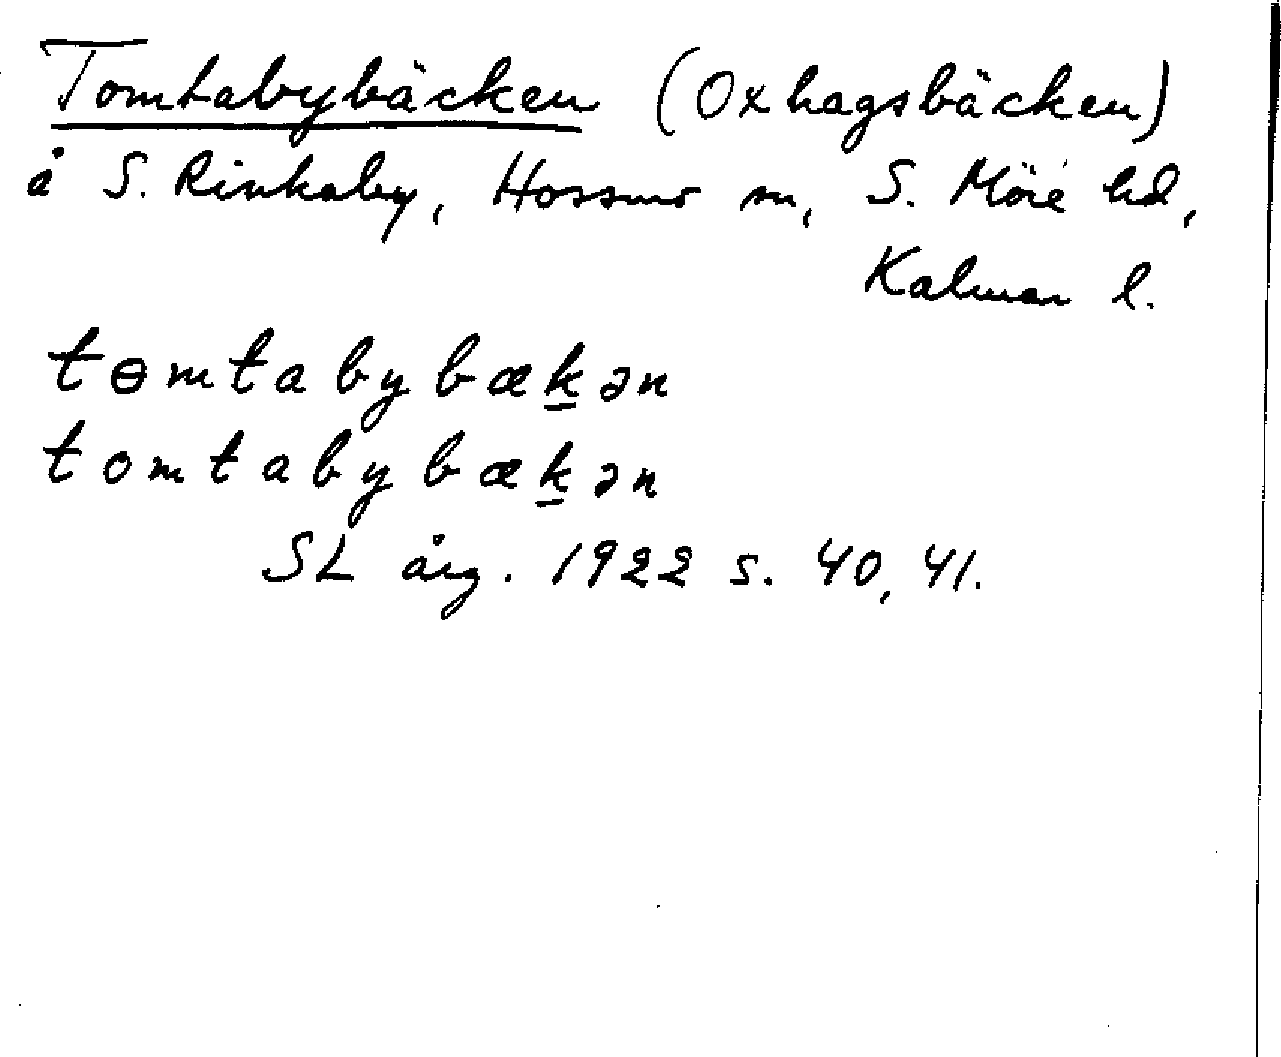 Tomtabybäcken (Oxhagsbäcken)
å S. Rinkaby, Hossmo sn, S. Möre hd,
Kalmar l.
tɵmtabybæk̲ən
tomtabybæk̲ən
SL årg. 1922 s. 40, 41.